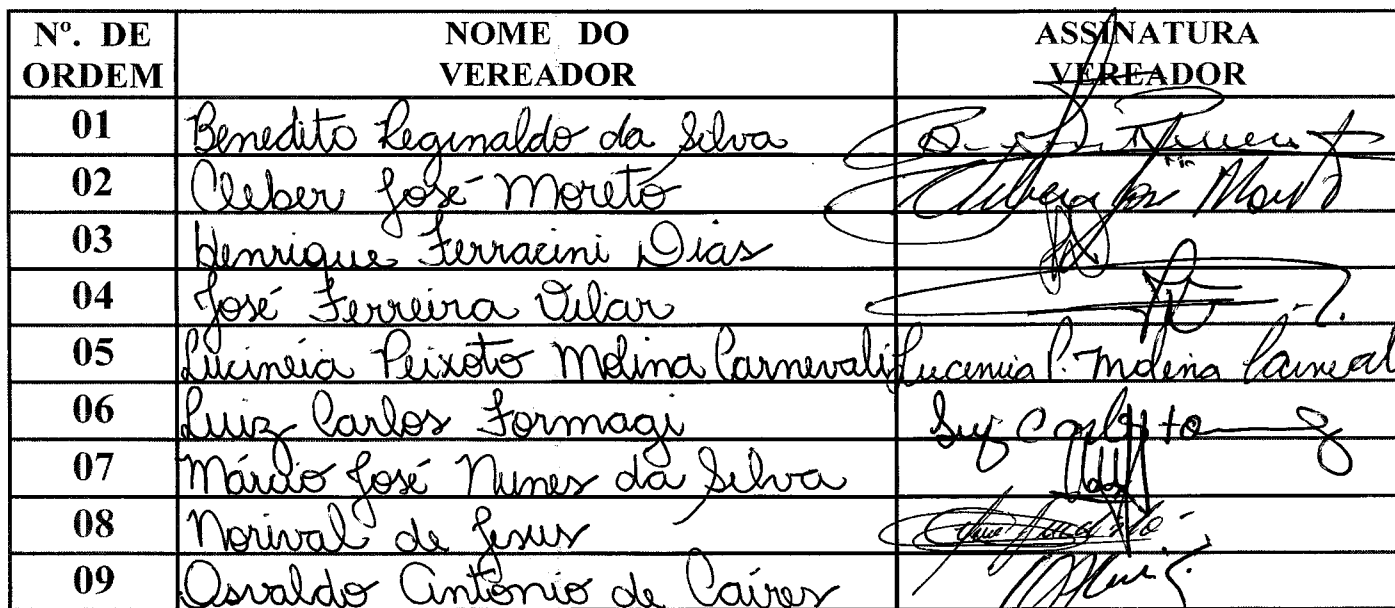 Nº. DE ORDEM NOME DO VEREADOR ASSINATURA VEREADOR
01 Benedito Reginaldo da Silva
02 Cleber José Moreto
03 Henrique Ferracini Dias
04 José Ferreira Vilar
05 Lucineia Peixoto Molina Carnevali Lucineia P. Molina
06 Luiz Carlos Formagi
07 Márcio José Nunes da Silva
08 Norival de Jesus
09 Osvaldo Antonio de Caires